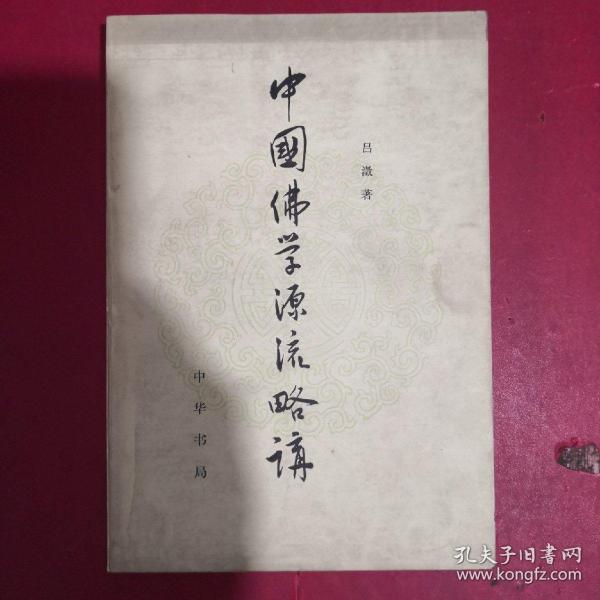 中國佛学源流略講
吕澂著
中华书局
孔夫子旧書网
www.kongfz.com